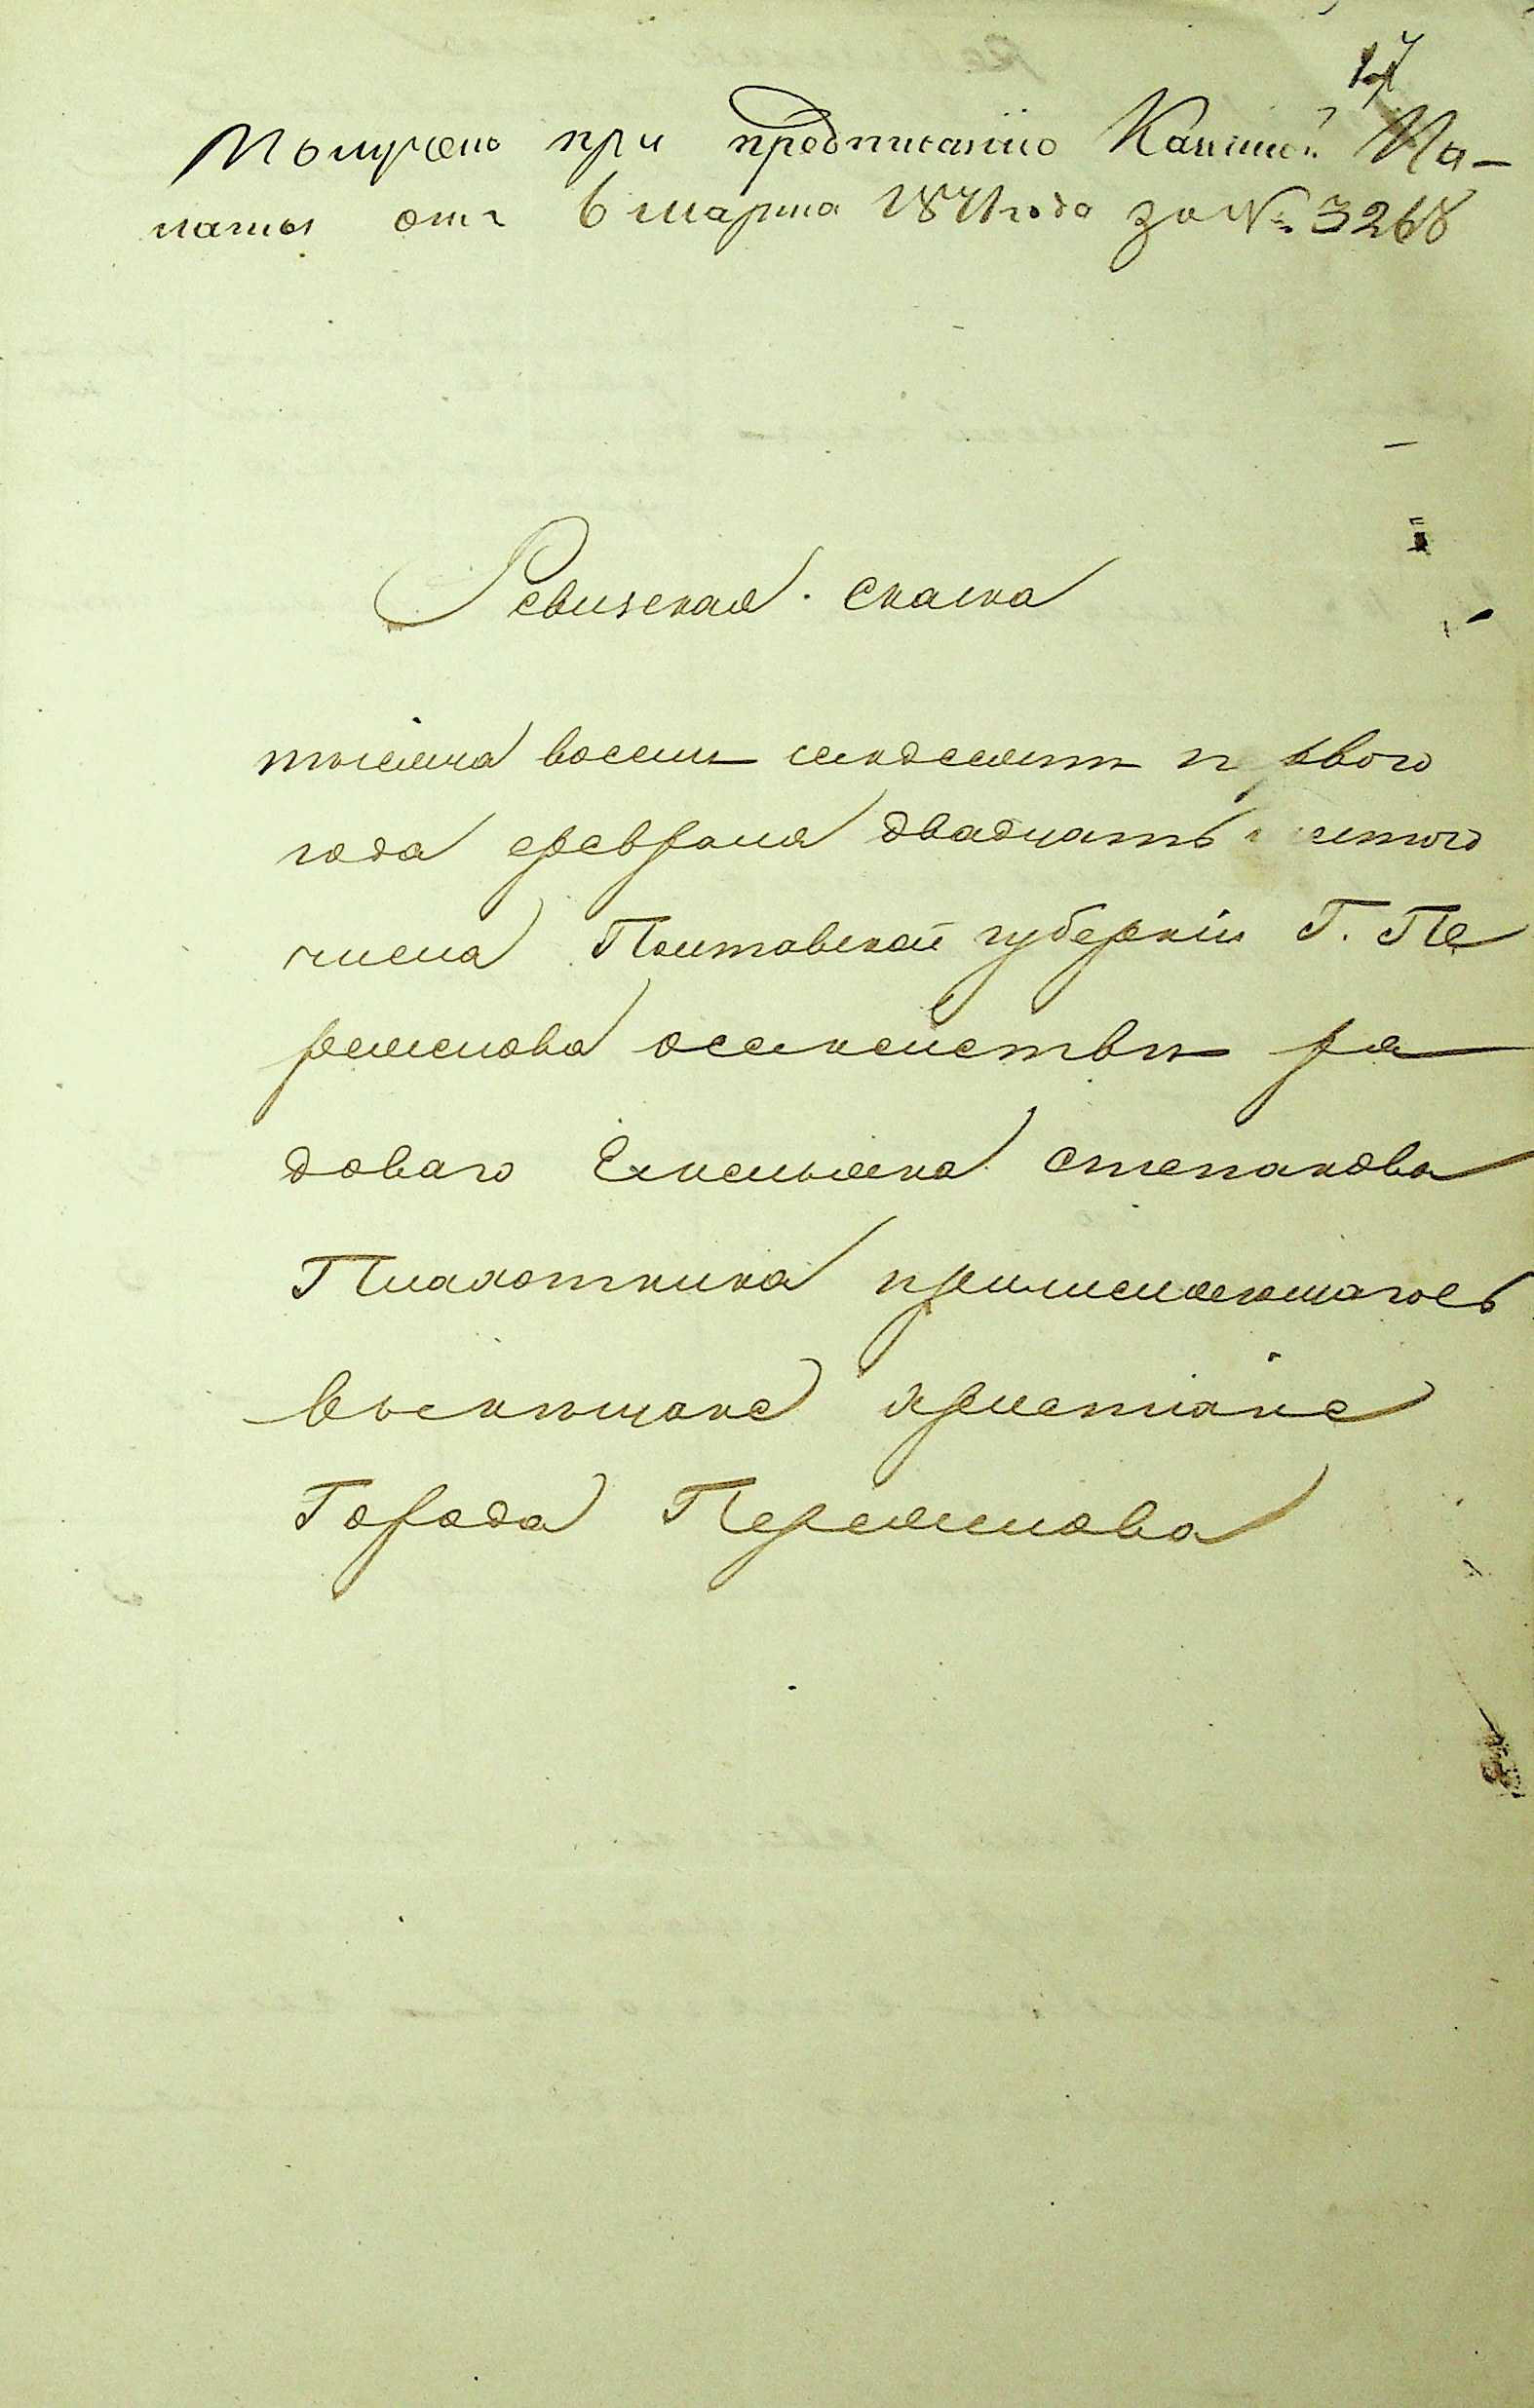 17
Получено при предписанію Казенной Па-
латы отъ 6 марта 1871 года за № 3268
Ревизская сказка
тысяча восемь семдесят первого
года февраля двадцать шестого
числа Полтавской губерніи Г. Пе
реяслова осемействи ря
доваго Емельяна степанова
Плахотника причисляющагось
вмещане христіане
Города Переяслова